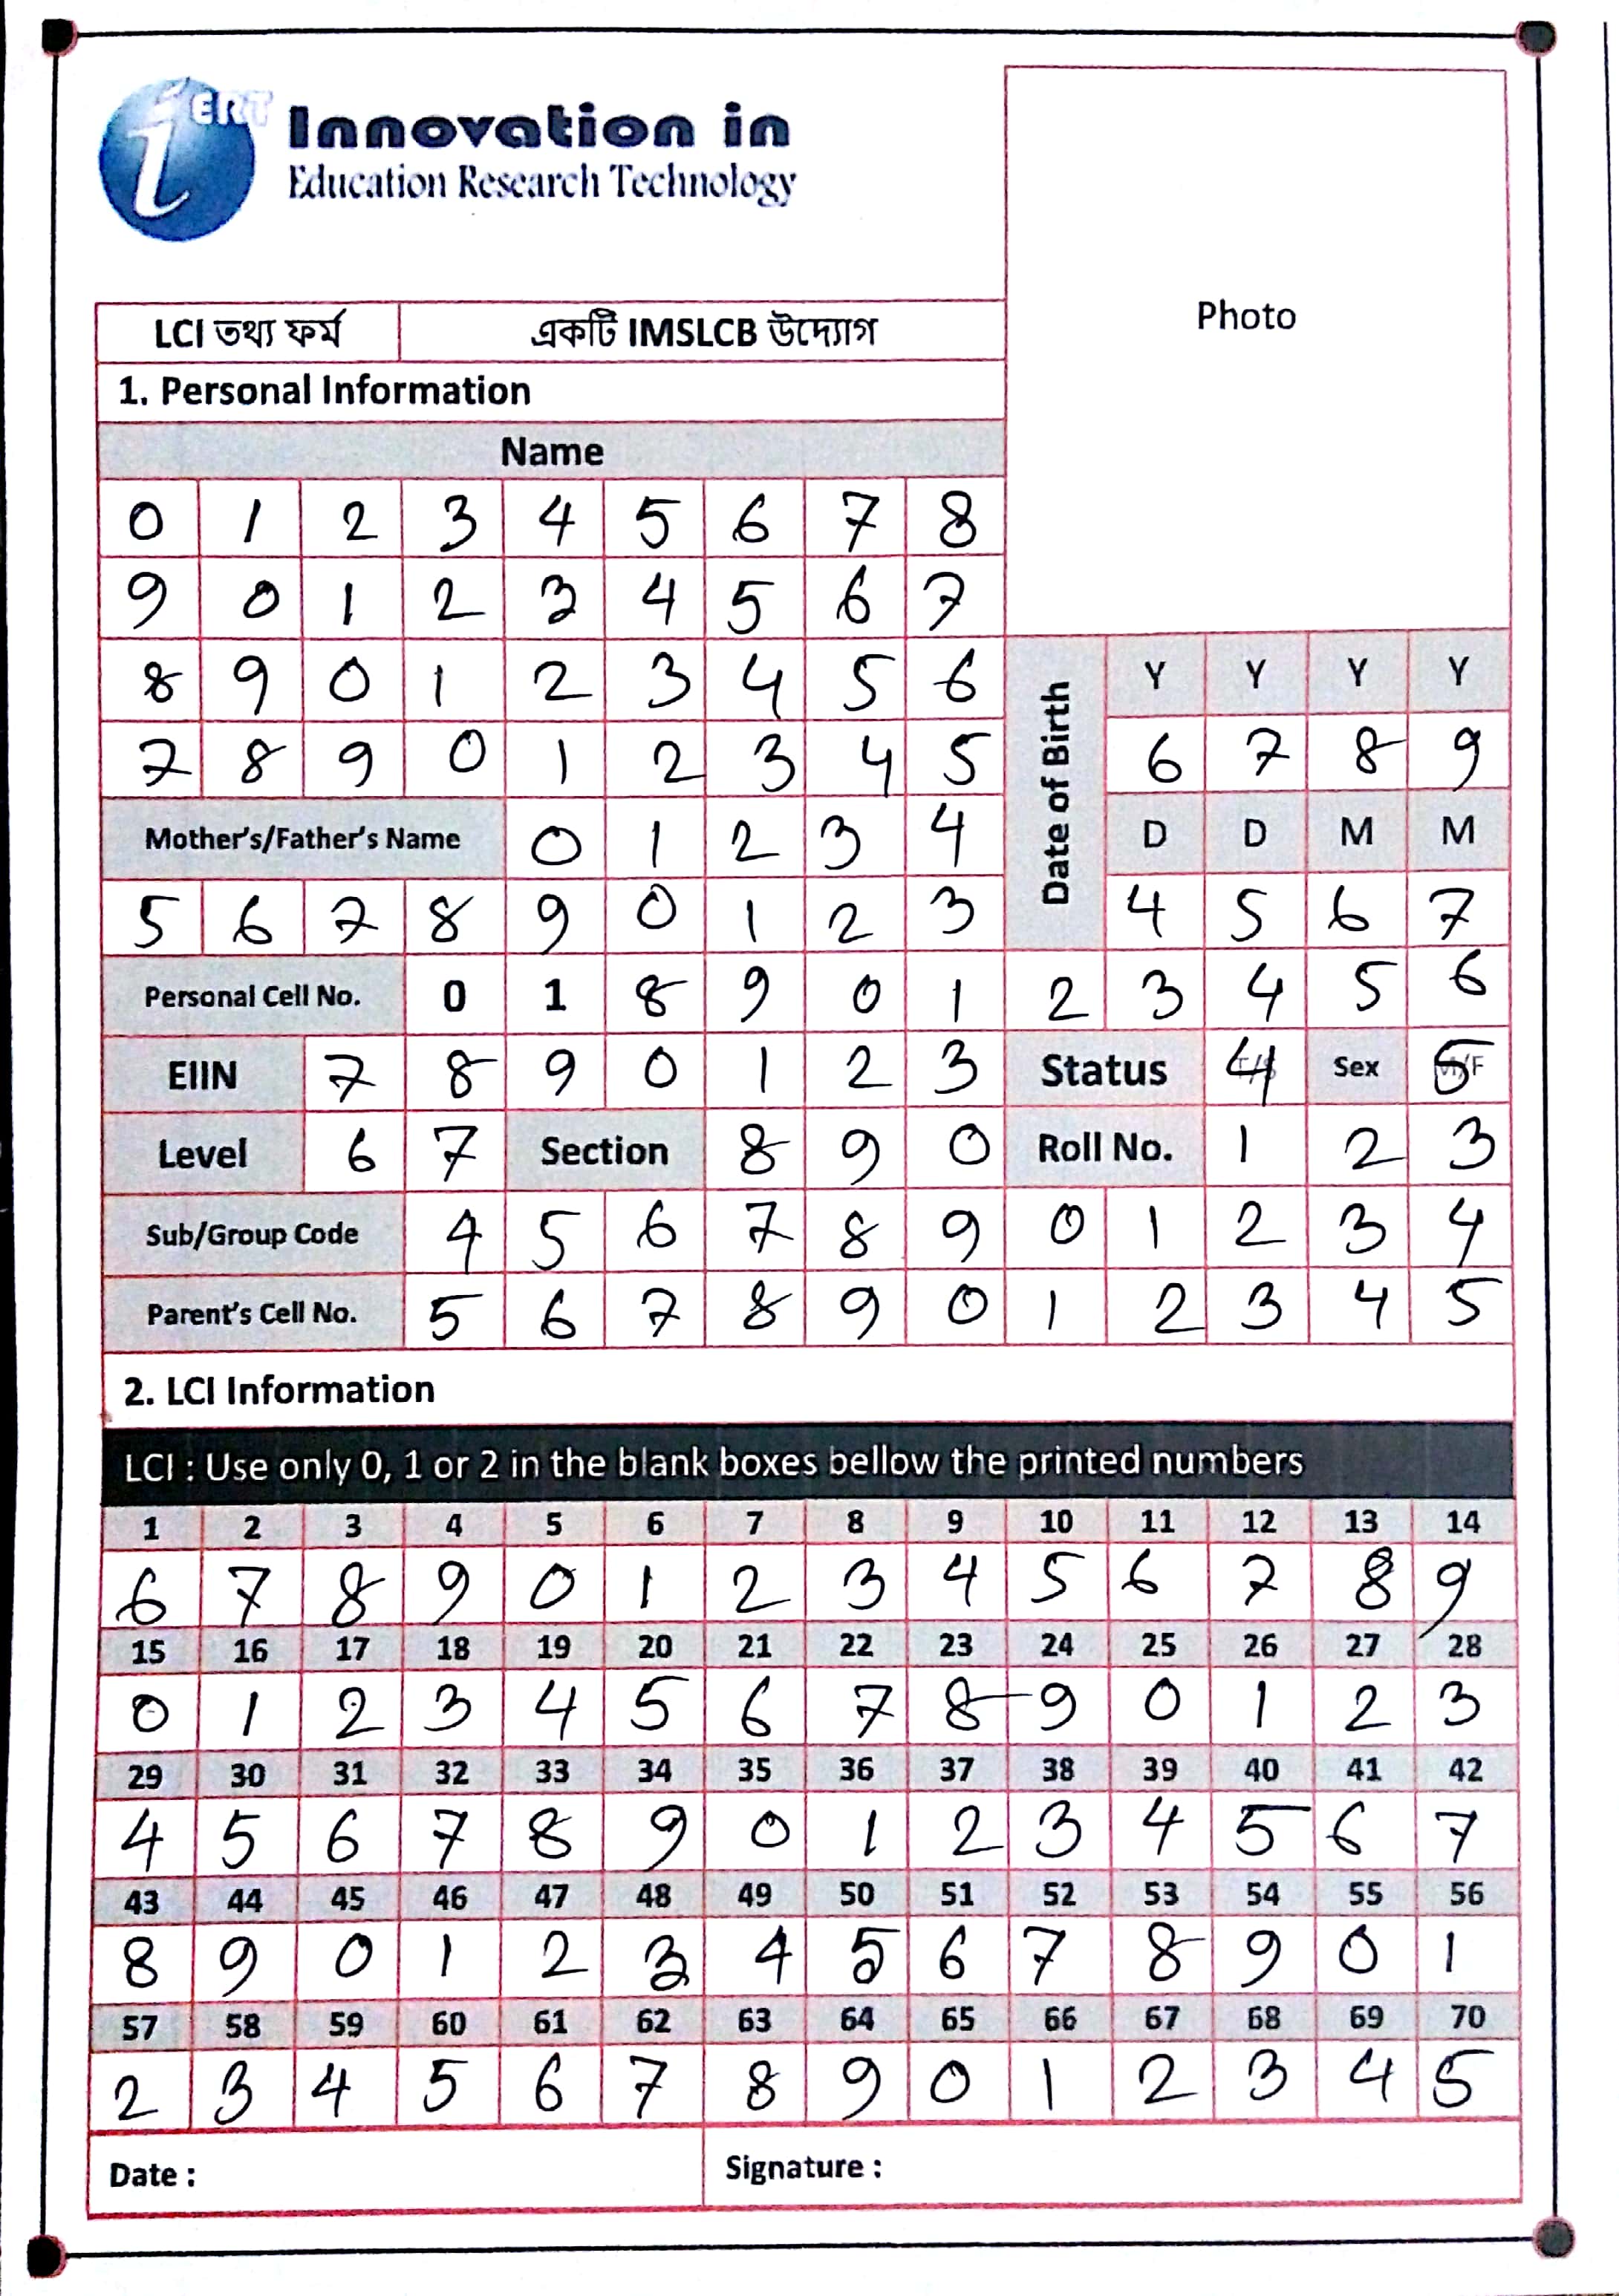 iERT Innovation in
Education Research Technology
Photo
LCI তথ্য ফর্ম একটি IMSLCB উদ্যোগ
1. Personal Information
Name
0 1 2 3 4 5 6 7 8
9 0 1 2 3 4 5 6 7
8 9 0 1 2 3 4 5 6 Date of Birth Y Y Y Y
7 8 9 0 1 2 3 4 5 6 7 8 9
Mother's/Father's Name 0 1 2 3 4 D D M M
5 6 7 8 9 0 1 2 3 4 5 6 7
Personal Cell No. 0 1 8 9 0 1 2 3 4 5 6
EIIN 7 8 9 0 1 2 3 Status 4 Sex 5 /F
Level 6 7 Section 8 9 0 Roll No. 1 2 3
Sub/Group Code 4 5 6 7 8 9 0 1 2 3 4
Parent's Cell No. 5 6 7 8 9 0 1 2 3 4 5
2. LCI Information
LCI : Use only 0, 1 or 2 in the blank boxes bellow the printed numbers
1 2 3 4 5 6 7 8 9 10 11 12 13 14
6 7 8 9 0 1 2 3 4 5 6 7 8 9
15 16 17 18 19 20 21 22 23 24 25 26 27 28
0 1 2 3 4 5 6 7 8 9 0 1 2 3
29 30 31 32 33 34 35 36 37 38 39 40 41 42
4 5 6 7 8 9 0 1 2 3 4 5 6 7
43 44 45 46 47 48 49 50 51 52 53 54 55 56
8 9 0 1 2 3 4 5 6 7 8 9 0 1
57 58 59 60 61 62 63 64 65 66 67 68 69 70
2 3 4 5 6 7 8 9 0 1 2 3 4 5
Date : Signature :